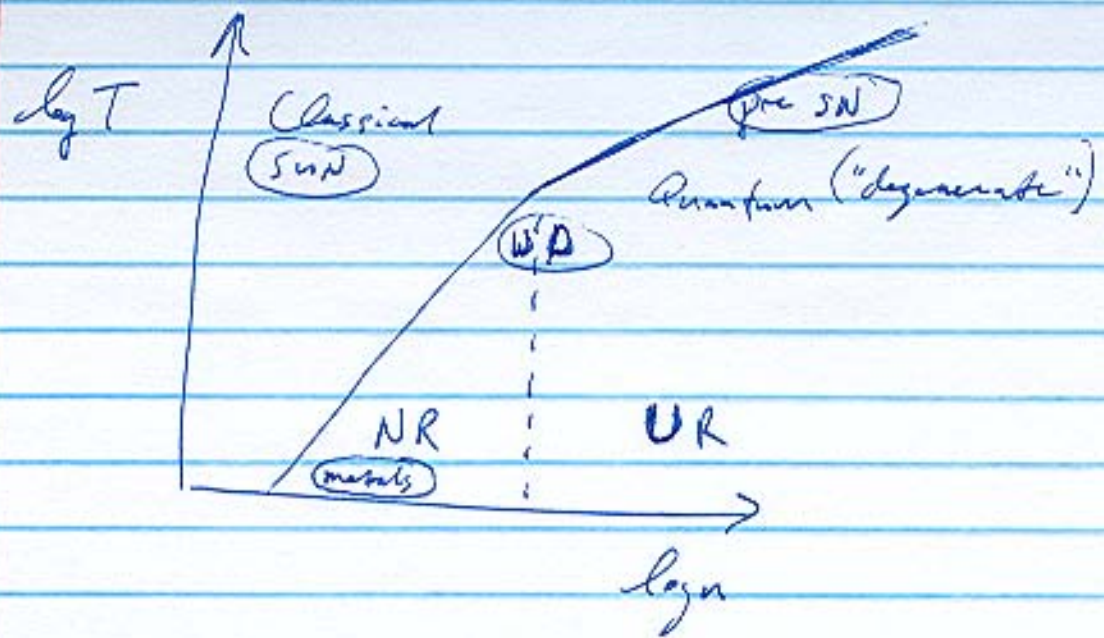 log T
Classical
SUN
pre SN
Quantum ("degenerate")
WD
NR
UR
metals
log n